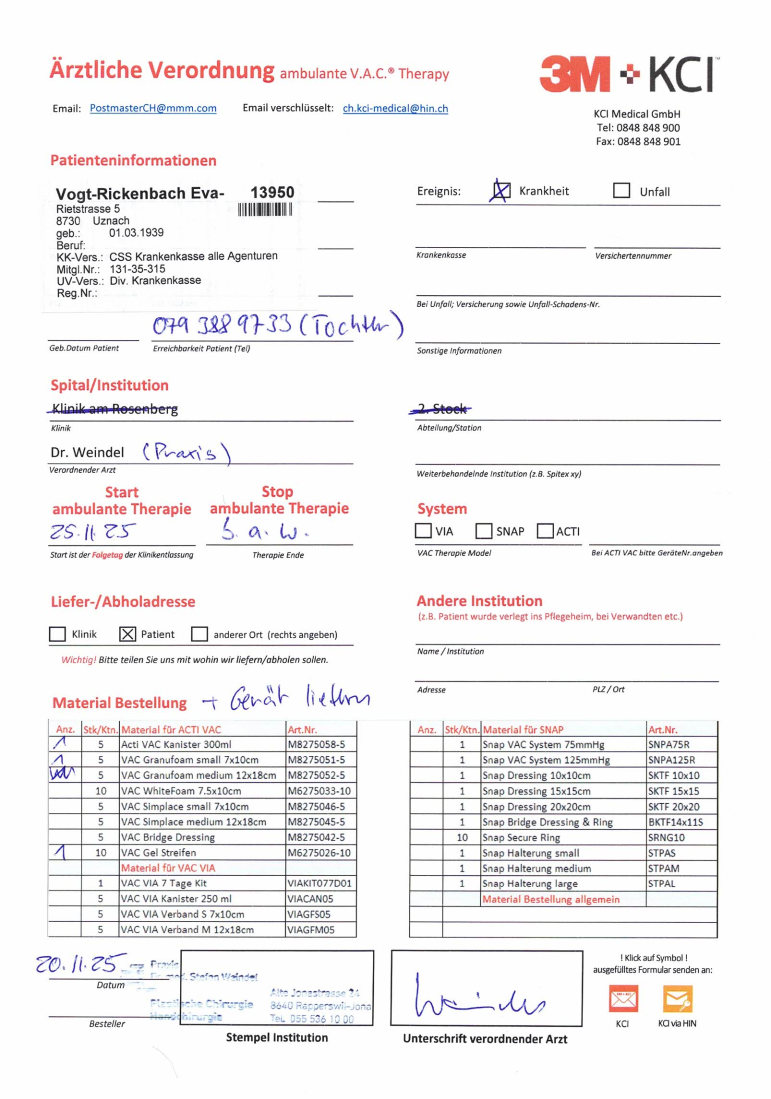 Ärztliche Verordnung ambulante V.A.C.® Therapy
3M + KCI™
Email: PostmasterCH@mmm.com Email verschlüsselt: ch.kci-medical@hin.ch
KCI Medical GmbH
Tel: 0848 848 900
Fax: 0848 848 901
Patienteninformationen
Vogt-Rickenbach Eva- 13950
Rietstrasse 5
8730 Uznach
geb.: 01.03.1939
Beruf:
KK-Vers.: CSS Krankenkasse alle Agenturen
Mitgl.Nr.: 131-35-315
UV-Vers.: Div. Krankenkasse
Reg.Nr.:
Ereignis: Krankheit Unfall
Krankenkasse Versichertennummer
Bei Unfall; Versicherung sowie Unfall-Schadens-Nr.
079 388 97 33 (Tochter)
Geb.Datum Patient Erreichbarkeit Patient (Tel)
Sonstige Informationen
Spital/Institution
Klinik am Rosenberg
Klinik
2. Stock
Abteilung/Station
Dr. Weindel (Praxis)
Verordnender Arzt
Weiterbehandelnde Institution (z.B. Spitex xy)
Start ambulante Therapie
Stop ambulante Therapie
25.11.25 b.a.w.
Start ist der Folgetag der Klinikentlassung Therapie Ende
System
VIA SNAP ACTI
VAC Therapie Model Bei ACTI VAC bitte GeräteNr.angeben
Liefer-/Abholadresse
Klinik Patient anderer Ort (rechts angeben)
Wichtig! Bitte teilen Sie uns mit wohin wir liefern/abholen sollen.
Andere Institution
(z.B. Patient wurde verlegt ins Pflegeheim, bei Verwandten etc.)
Name / Institution
Adresse PLZ / Ort
Material Bestellung + Gerät liefern
Anz. Stk/Ktn. Material für ACTI VAC Art.Nr.
1 5 Acti VAC Kanister 300ml M8275058-5
1 5 VAC Granufoam small 7x10cm M8275051-5
5 VAC Granufoam medium 12x18cm M8275052-5
10 VAC WhiteFoam 7.5x10cm M6275033-10
5 VAC Simplace small 7x10cm M8275046-5
5 VAC Simplace medium 12x18cm M8275045-5
5 VAC Bridge Dressing M8275042-5
1 10 VAC Gel Streifen M6275026-10
Material für VAC VIA
1 VAC VIA 7 Tage Kit VIAKIT077D01
5 VAC VIA Kanister 250 ml VIACAN05
5 VAC VIA Verband S 7x10cm VIAGFS05
5 VAC VIA Verband M 12x18cm VIAGFM05
Anz. Stk/Ktn. Material für SNAP Art.Nr.
1 Snap VAC System 75mmHg SNPA75R
1 Snap VAC System 125mmHg SNPA125R
1 Snap Dressing 10x10cm SKTF 10x10
1 Snap Dressing 15x15cm SKTF 15x15
1 Snap Dressing 20x20cm SKTF 20x20
1 Snap Bridge Dressing & Ring BKTF14x11S
10 Snap Secure Ring SRNG10
1 Snap Halterung small STPAS
1 Snap Halterung medium STPAM
1 Snap Halterung large STPAL
Material Bestellung allgemein
20.11.25
Datum
Besteller
Praxis
Dr. med. Stefan Weindel
Plastische Chirurgie
Handchirurgie
Alte Jonastrasse 24
8640 Rapperswil-Jona
Tel. 055 536 10 00
Stempel Institution
Weindel
Unterschrift verordnender Arzt
! Klick auf Symbol !
ausgefülltes Formular senden an:
KCI KCI via HIN